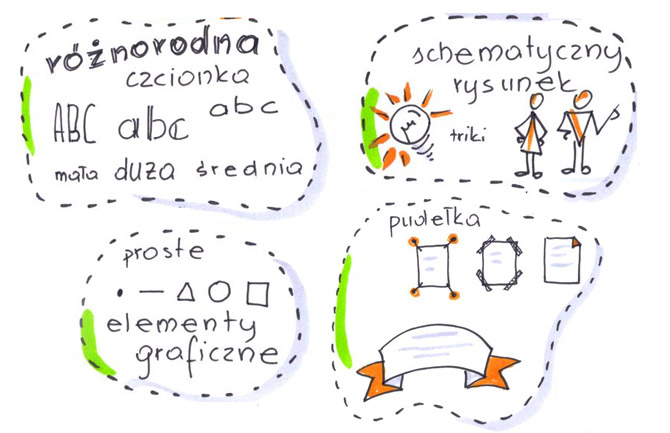 różnorodna
czcionka
ABC abc abc
mała duża średnia
schematyczny
rysunek
triki
proste
elementy
graficzne
pudełka